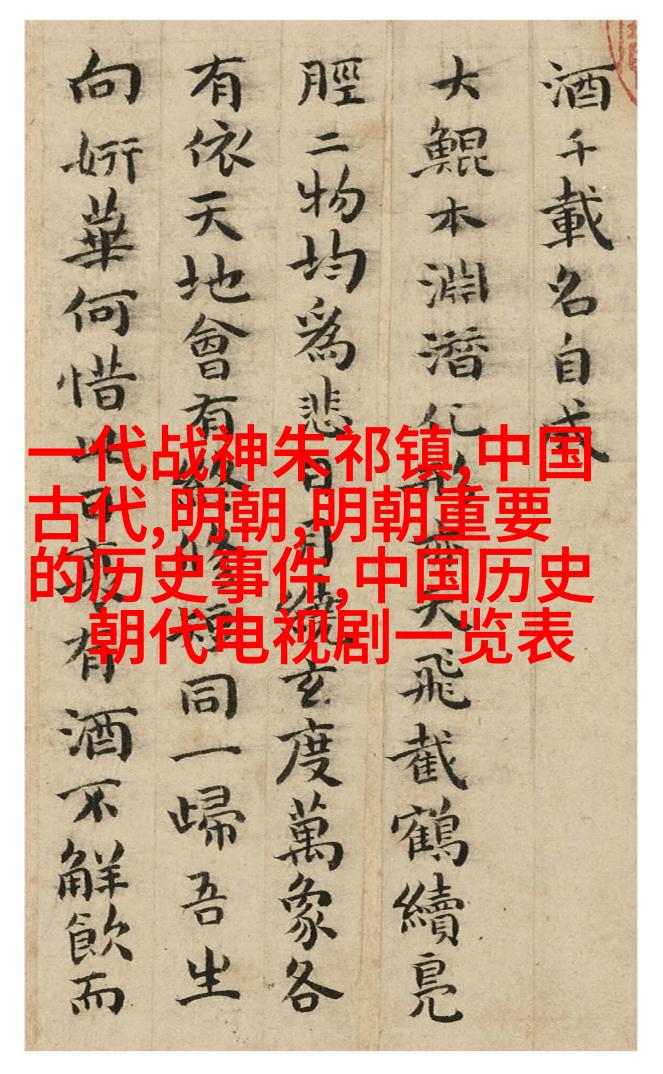 酒千載名自成
大鯤本淵潛化天飛截鶴續鳧
脛二物均爲悲日月繞玄度萬象各
有依天地會有終脩短同一歸吾生
向妍華何惜此可哀有酒不觧飲而
一代战神朱祁镇,中国
古代,明朝,明朝重要
的历史事件,中国历史
朝代电视剧一览表